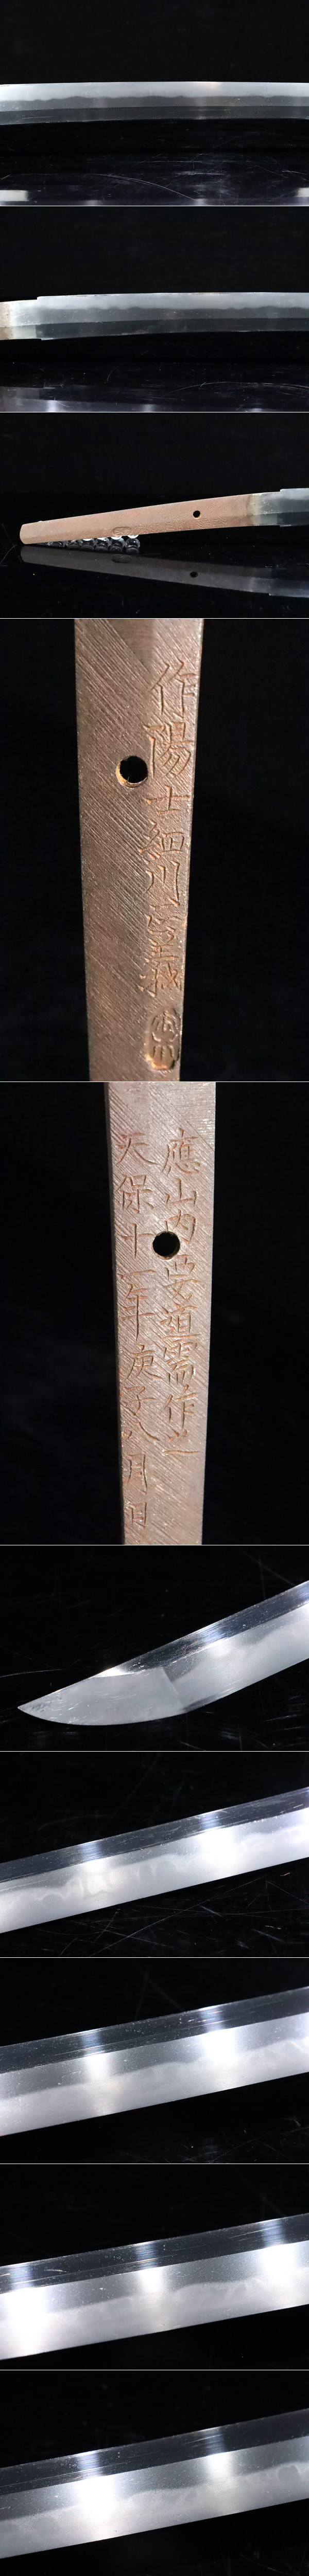 作陽士細川正義
應山内要道需作之
天保十一年庚子八月日